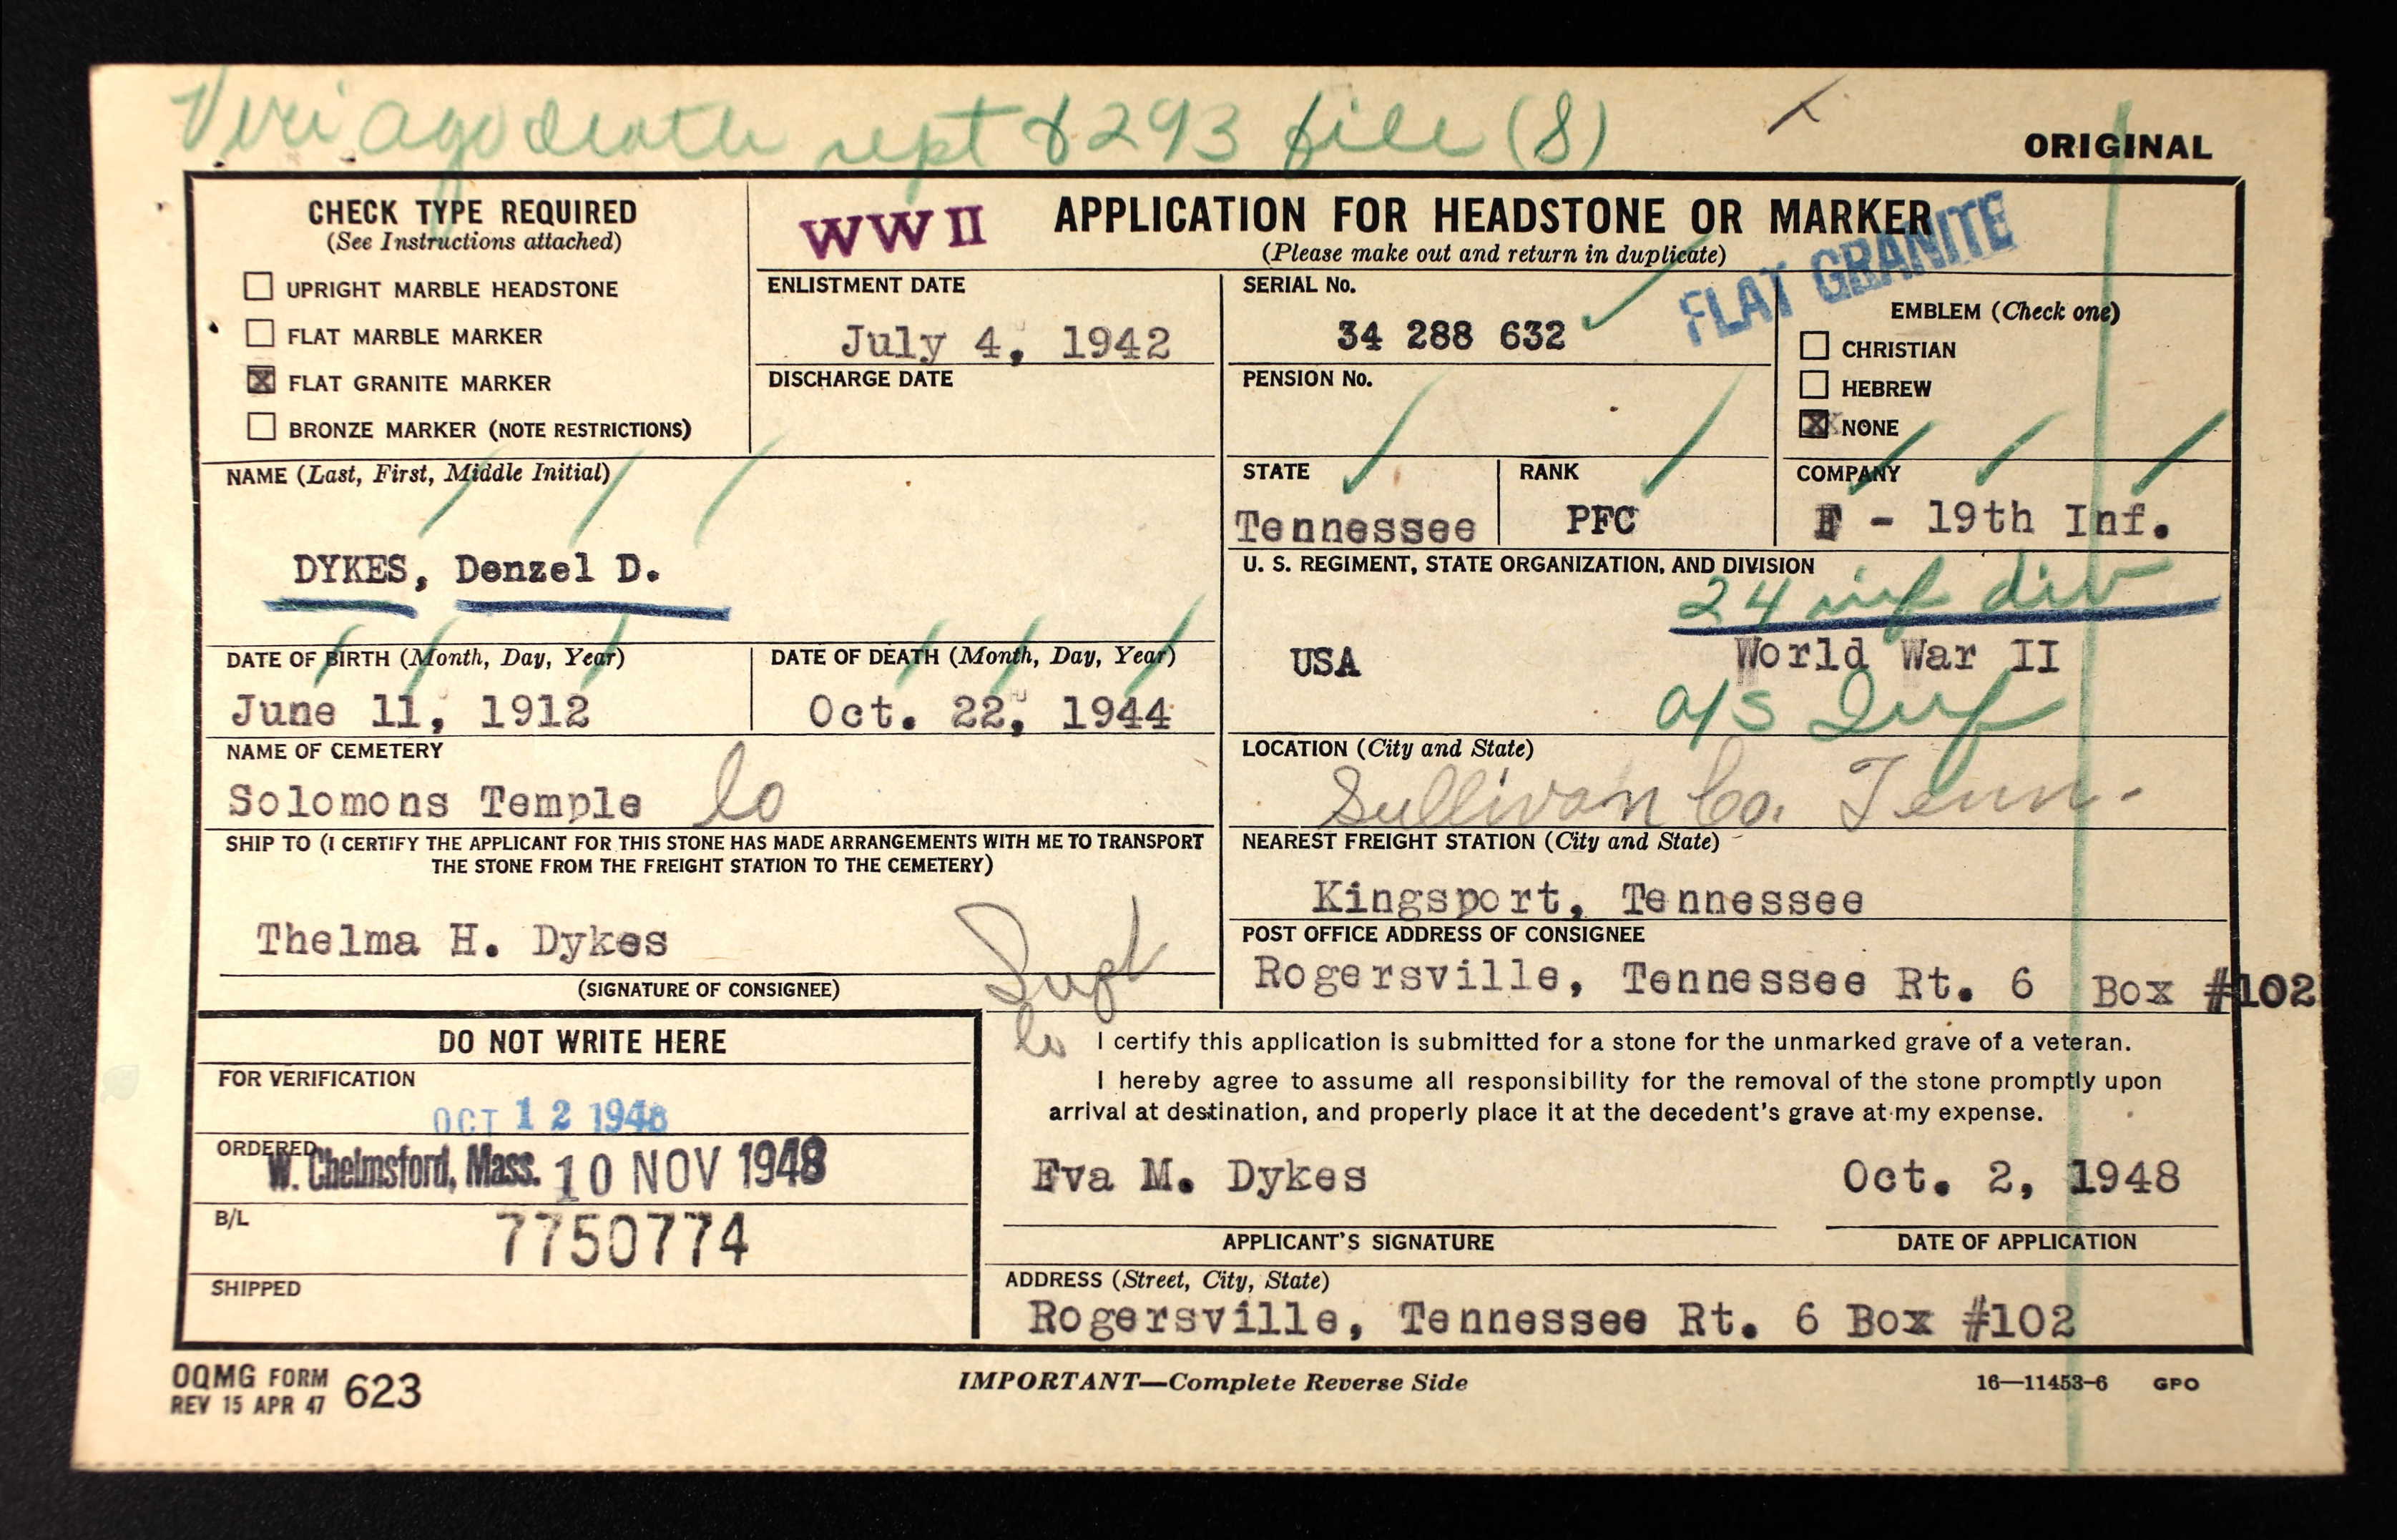 Veri ago death rept & 293 file (8)
ORIGINAL
CHECK TYPE REQUIRED
(See Instructions attached)
UPRIGHT MARBLE HEADSTONE
FLAT MARBLE MARKER
X FLAT GRANITE MARKER
BRONZE MARKER (NOTE RESTRICTIONS)
WW II
APPLICATION FOR HEADSTONE OR MARKER
(Please make out and return in duplicate)
FLAT GRANITE
ENLISTMENT DATE
July 4, 1942
DISCHARGE DATE
SERIAL No.
34 288 632
PENSION No.
EMBLEM (Check one)
CHRISTIAN
HEBREW
X NONE
NAME (Last, First, Middle Initial)
DYKES, Denzel D.
STATE
Tennessee
RANK
PFC
COMPANY
F - 19th Inf.
U. S. REGIMENT, STATE ORGANIZATION, AND DIVISION
24 inf div
USA World War II
a/s Inf
DATE OF BIRTH (Month, Day, Year)
June 11, 1912
DATE OF DEATH (Month, Day, Year)
Oct. 22, 1944
NAME OF CEMETERY
Solomons Temple
LOCATION (City and State)
Sullivan Co. Tenn.
SHIP TO (I CERTIFY THE APPLICANT FOR THIS STONE HAS MADE ARRANGEMENTS WITH ME TO TRANSPORT
THE STONE FROM THE FREIGHT STATION TO THE CEMETERY)
Thelma H. Dykes
Supt
(SIGNATURE OF CONSIGNEE)
NEAREST FREIGHT STATION (City and State)
Kingsport, Tennessee
POST OFFICE ADDRESS OF CONSIGNEE
Rogersville, Tennessee Rt. 6 Box #102
DO NOT WRITE HERE
FOR VERIFICATION
OCT 12 1948
ORDERED
W. Chelmsford, Mass. 10 NOV 1948
B/L
7750774
SHIPPED
I certify this application is submitted for a stone for the unmarked grave of a veteran.
I hereby agree to assume all responsibility for the removal of the stone promptly upon
arrival at destination, and properly place it at the decedent's grave at my expense.
Eva M. Dykes
Oct. 2, 1948
APPLICANT'S SIGNATURE
DATE OF APPLICATION
ADDRESS (Street, City, State)
Rogersville, Tennessee Rt. 6 Box #102
OQMG FORM 623
REV 15 APR 47
IMPORTANT—Complete Reverse Side
16—11453-6 GPO